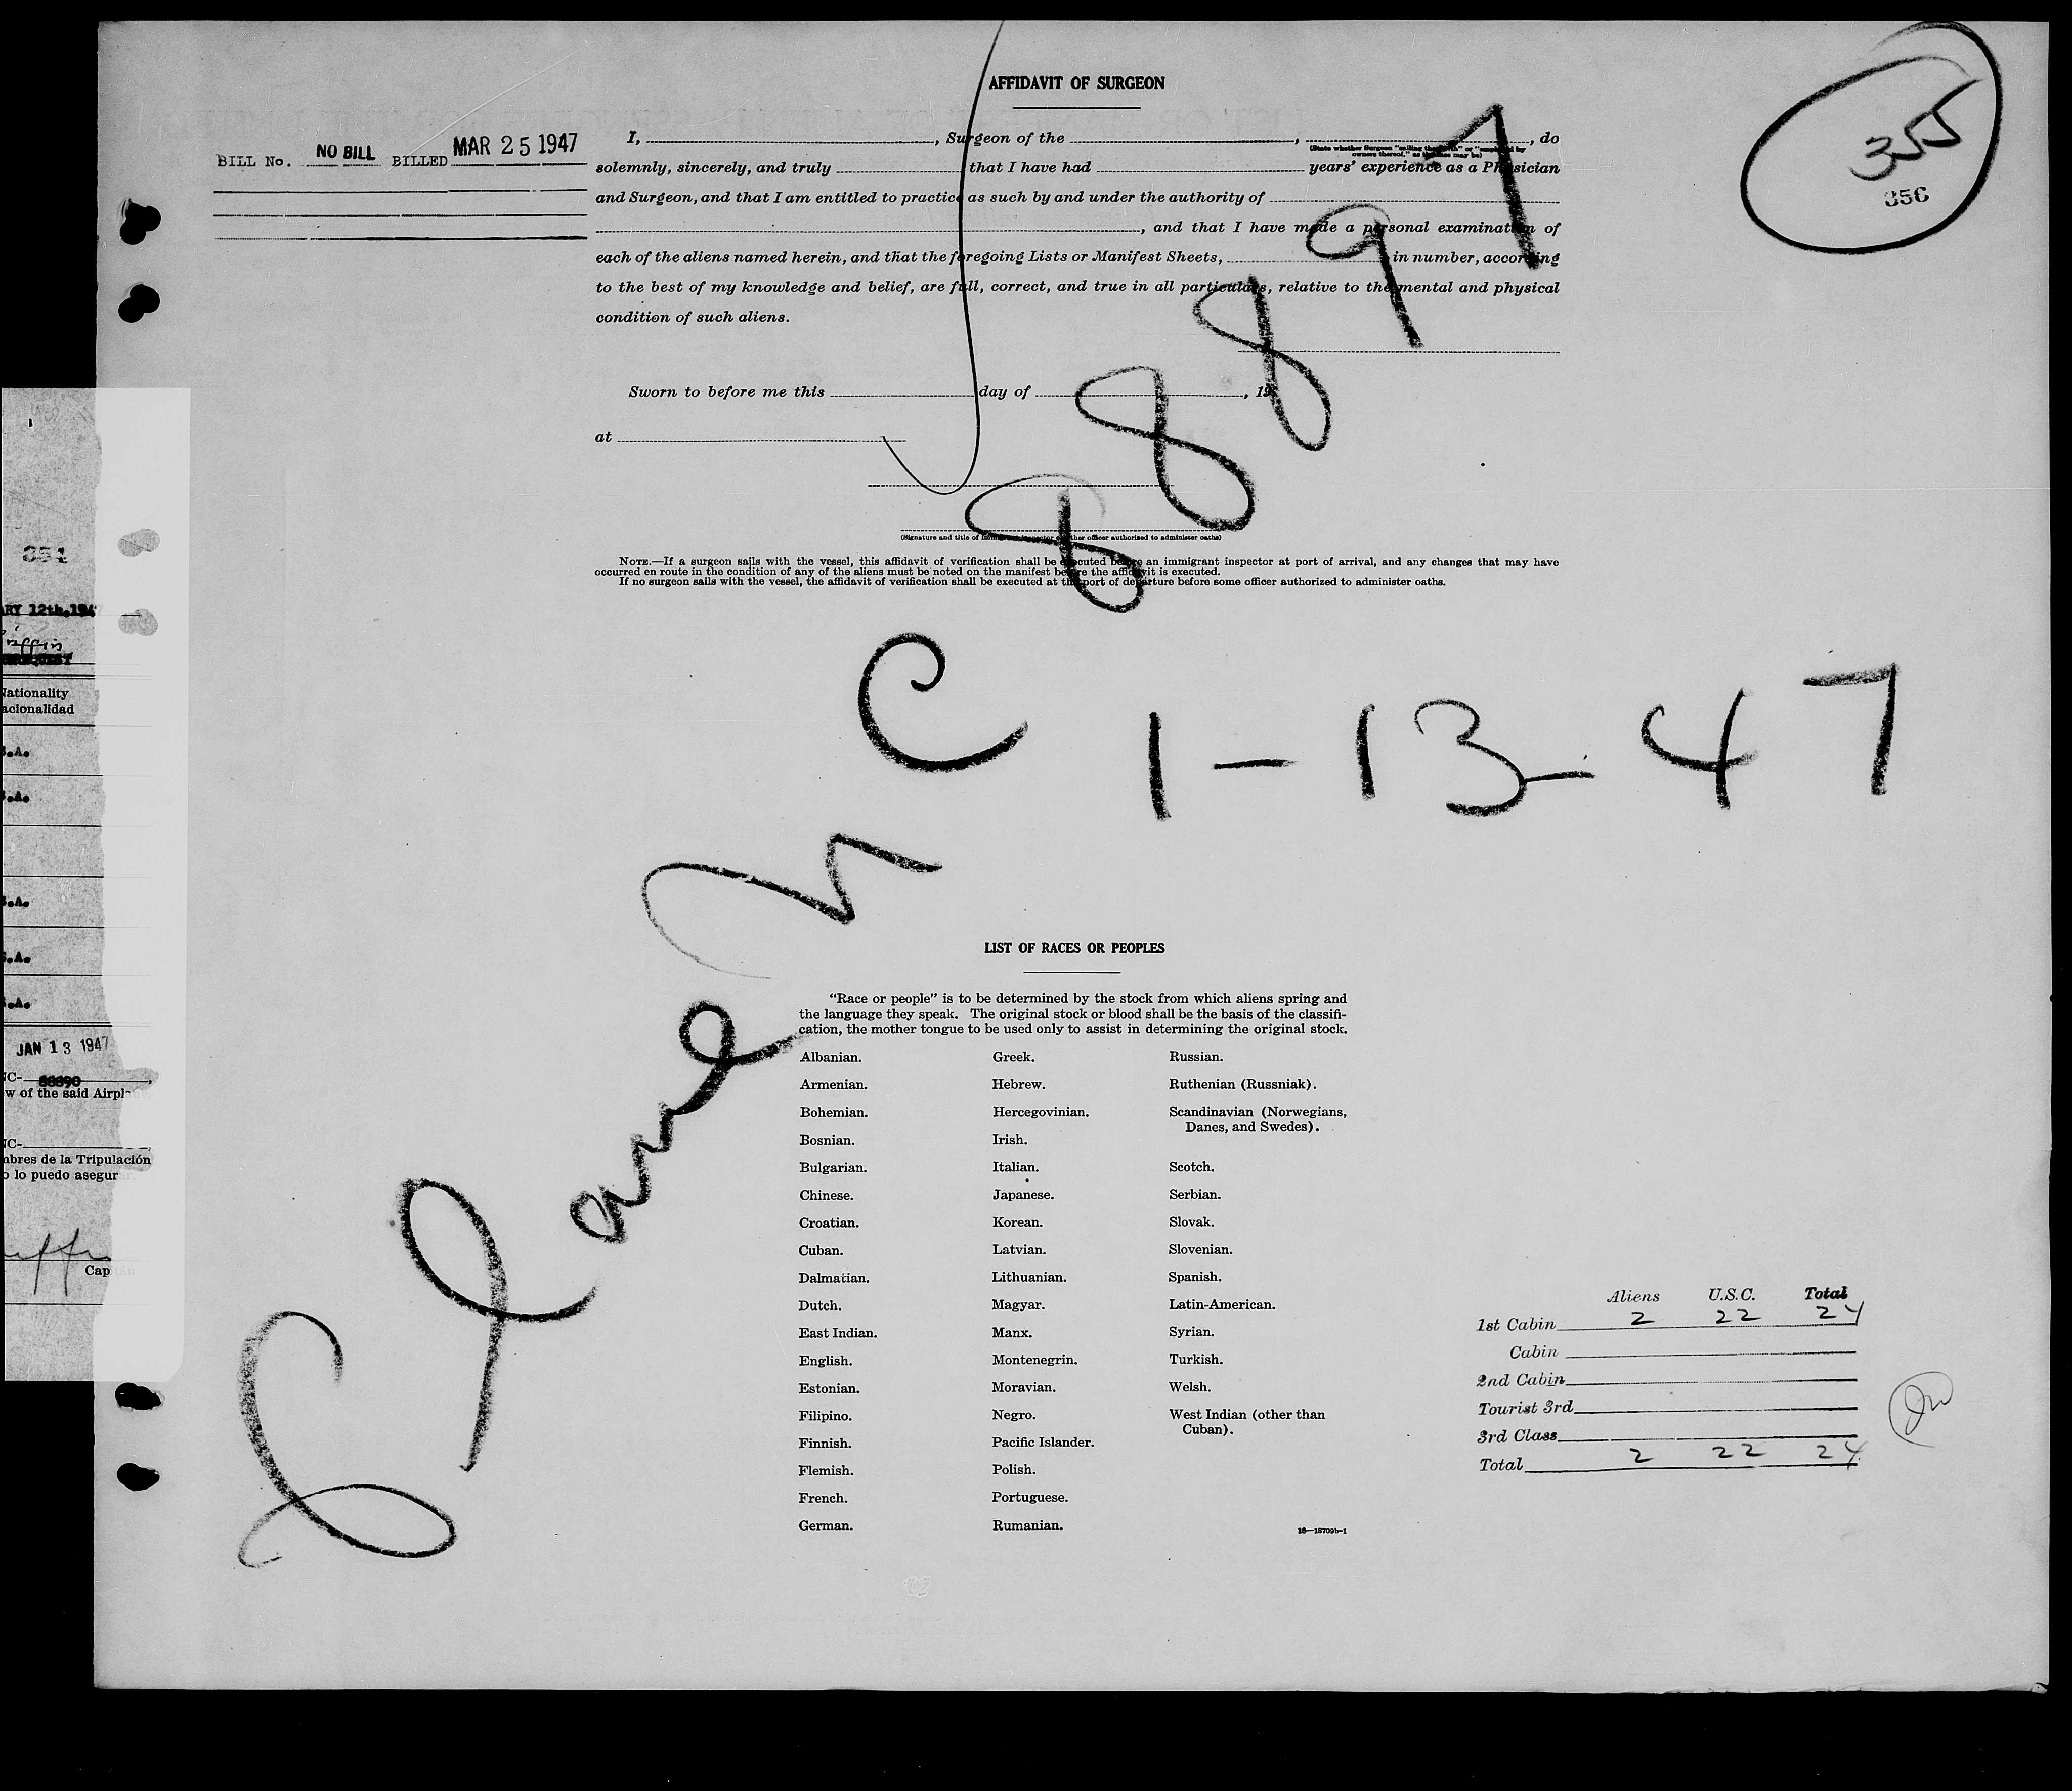 AFFIDAVIT OF SURGEON
355
356
BILL No. NO BILL BILLED MAR 25 1947
I, , Surgeon of the , , do
(State whether Surgeon "sailing therewith" or "employed by
owners thereof," as the case may be)
solemnly, sincerely, and truly that I have had years' experience as a Physician
and Surgeon, and that I am entitled to practice as such by and under the authority of
, and that I have made a personal examination of
each of the aliens named herein, and that the foregoing Lists or Manifest Sheets, in number, according
to the best of my knowledge and belief, are full, correct, and true in all particulars, relative to the mental and physical
condition of such aliens.
Sworn to before me this day of , 19
at
(Signature and title of immigrant inspector or other officer authorized to administer oaths)
NOTE.—If a surgeon sails with the vessel, this affidavit of verification shall be executed before an immigrant inspector at port of arrival, and any changes that may have
occurred en route in the condition of any of the aliens must be noted on the manifest before the affidavit is executed.
If no surgeon sails with the vessel, the affidavit of verification shall be executed at the port of departure before some officer authorized to administer oaths.
Plane NC 88897
1-13-47
LIST OF RACES OR PEOPLES
"Race or people" is to be determined by the stock from which aliens spring and
the language they speak. The original stock or blood shall be the basis of the classifi-
cation, the mother tongue to be used only to assist in determining the original stock.
Albanian.
Armenian.
Bohemian.
Bosnian.
Bulgarian.
Chinese.
Croatian.
Cuban.
Dalmatian.
Dutch.
East Indian.
English.
Estonian.
Filipino.
Finnish.
Flemish.
French.
German.
Greek.
Hebrew.
Hercegovinian.
Irish.
Italian.
Japanese.
Korean.
Latvian.
Lithuanian.
Magyar.
Manx.
Montenegrin.
Moravian.
Negro.
Pacific Islander.
Polish.
Portuguese.
Rumanian.
Russian.
Ruthenian (Russniak).
Scandinavian (Norwegians,
Danes, and Swedes).
Scotch.
Serbian.
Slovak.
Slovenian.
Spanish.
Latin-American.
Syrian.
Turkish.
Welsh.
West Indian (other than
Cuban).
16—18709b-1
Aliens U.S.C. Total
1st Cabin 2 22 24
Cabin
2nd Cabin
Tourist 3rd
3rd Class
Total 2 22 24
354
ARY 12th.194
riffin
Nationality
acionalidad
S.A.
S.A.
S.A.
S.A.
S.A.
JAN 13 1947
NC- 88890
w of the said Airplane
NC-
mbres de la Tripulación
o lo puedo asegur
Capitán